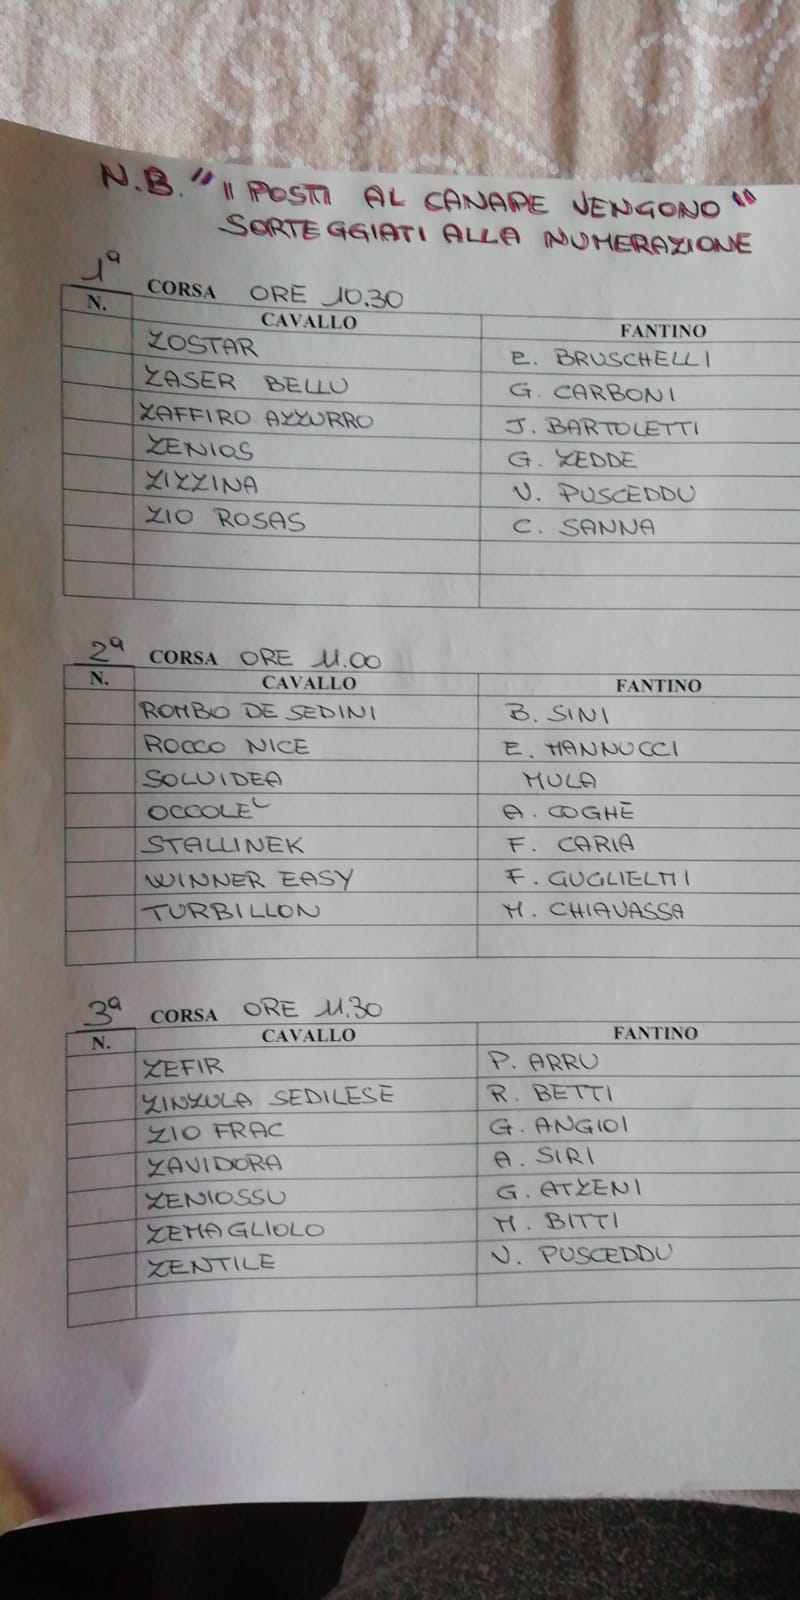 N.B. "I POSTI AL CANAPE VENGONO"
SORTEGGIATI ALLA NUMERAZIONE
1ª CORSA ORE 10.30
N. CAVALLO FANTINO
ZOSTAR E. BRUSCHELLI
ZASER BELLU G. CARBONI
ZAFFIRO AZZURRO J. BARTOLETTI
ZENIOS G. ZEDDE
ZIZZINA V. PUSCEDDU
ZIO ROSAS C. SANNA
2ª CORSA ORE 11.00
N. CAVALLO FANTINO
ROMBO DE SEDINI B. SINI
ROCCO NICE E. MANNUCCI
SOLUIDEA MULA
OCCOLEL A. COGHE
STALLINEK F. CARIA
WINNER EASY F. GUGLIELMI
TURBILLON M. CHIAVASSA
3ª CORSA ORE 11.30
N. CAVALLO FANTINO
ZEFIR P. ARRU
ZINZULA SEDILESE R. BETTI
ZIO FRAC G. ANGIOI
ZAVIDORA A. SIRI
ZENIOSSU G. ATZENI
ZEMAGLIOLO M. BITTI
ZENTILE V. PUSCEDDU